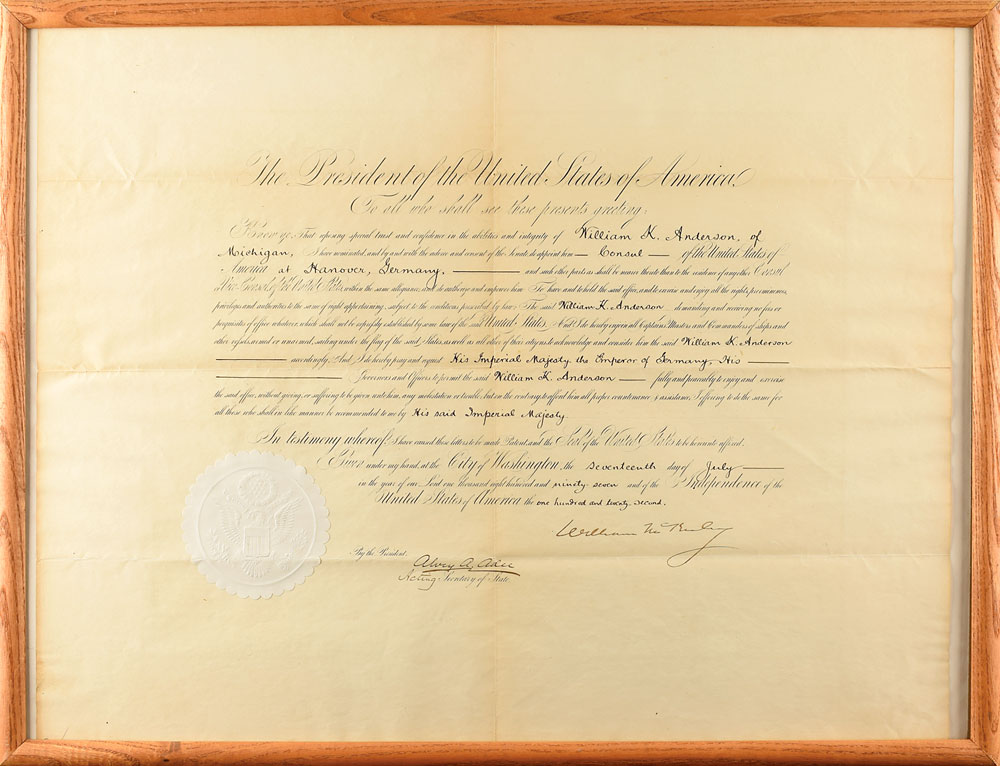 The President of the United States of America.
To all who shall see these presents greeting:
Know ye, That reposing special trust and confidence in the abilities and integrity of William K. Anderson, of
Michigan, I have nominated, and by and with the advice and consent of the Senate do appoint him — Consul — of the United States of
America at Hanover, Germany, — and such other parts as shall be nearer thereto than to the residence of any other Consul
or Vice Consul of the United States, within the same allegiance, and do authorize and empower him To have and to hold the said office, and to exercise and enjoy all the rights, preeminences,
privileges and authorities to the same of right appertaining, subject to the conditions prescribed by law: The said William K. Anderson demanding and receiving no fees or
perquisites of office whatever, which shall not be expressly established by some law of the said United States. And I do hereby enjoin all Captains, Masters and Commanders of ships and
other vessels, armed or unarmed, sailing under the flag of the said States, as well as all other of their citizens to acknowledge and consider him the said William K. Anderson
— accordingly. And, I do hereby pray and request His Imperial Majesty the Emperor of Germany, His —
— Governors and Officers to permit the said William K. Anderson — fully and peaceably to enjoy and exercise
the said office, without giving, or suffering to be given unto him, any molestation or trouble, but on the contrary to afford him all proper countenance & assistance; I offering to do the same for
all those who shall in like manner be recommended to me by His said Imperial Majesty.
In testimony whereof, I have caused these letters to be made Patent, and the Seal of the United States to be hereunto affixed.
Given under my hand, at the City of Washington, the seventeenth day of July —
in the year of our Lord one thousand eight hundred and ninety seven and of the Independence of the
United States of America the one hundred and twenty second.
William McKinley
By the President.
Alvey A. Adee
Acting Secretary of State.